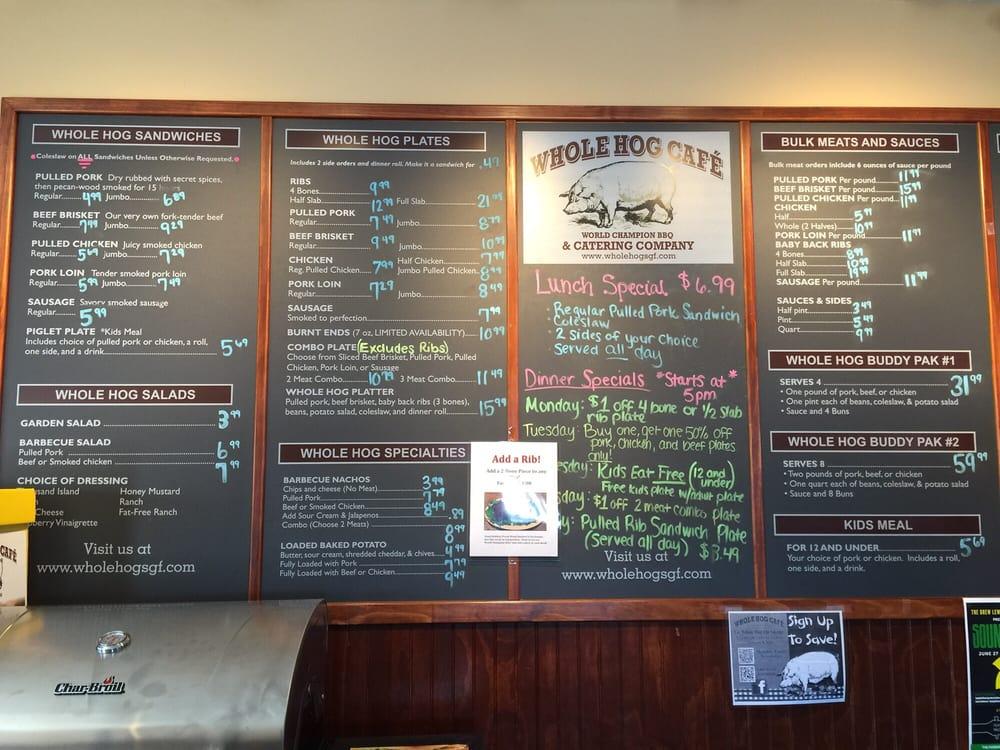 WHOLE HOG SANDWICHES
Coleslaw on ALL Sandwiches Unless Otherwise Requested.
PULLED PORK Dry rubbed with secret spices,
then pecan-wood smoked for 15
Regular 4.99 Jumbo 6.89
BEEF BRISKET Our very own fork-tender beef
Regular 7.49 Jumbo 9.29
PULLED CHICKEN Juicy smoked chicken
Regular 5.69 Jumbo 7.29
PORK LOIN Tender smoked pork loin
Regular 5.99 Jumbo 7.49
SAUSAGE Savory smoked sausage
Regular 5.99
PIGLET PLATE *Kids Meal
Includes choice of pulled pork or chicken, a roll,
one side, and a drink 5.69
WHOLE HOG SALADS
GARDEN SALAD 3.99
BARBECUE SALAD
Pulled Pork 6.99
Beef or Smoked chicken 7.99
CHOICE OF DRESSING
Island Honey Mustard
Ranch
Cheese Fat-Free Ranch
Vinaigrette
Visit us at
www.wholehogsf.com
WHOLE HOG PLATES
Includes 2 side orders and dinner roll. Make it a sandwich for .49
RIBS
4 Bones 9.99
Half Slab 12.99 Full Slab 21.99
PULLED PORK
Regular 7.49 Jumbo 8.79
BEEF BRISKET
Regular 9.49 Jumbo 10.99
CHICKEN Half Chicken 7.99
Reg. Pulled Chicken 7.99 Jumbo Pulled Chicken 8.99
PORK LOIN
Regular 7.29 Jumbo 8.49
SAUSAGE
Smoked to perfection 7.99
BURNT ENDS (7 oz, LIMITED AVAILABILITY) 10.99
COMBO PLATE (Excludes Ribs)
Choose from Sliced Beef Brisket, Pulled Pork, Pulled
Chicken, Pork Loin, or Sausage
2 Meat Combo 10.79 3 Meat Combo 11.49
WHOLE HOG PLATTER
Pulled pork, beef brisket, baby back ribs (3 bones),
beans, potato salad, coleslaw, and dinner roll 15.99
WHOLE HOG SPECIALTIES
BARBECUE NACHOS
Chips and cheese (No Meat) 3.99
Pulled Pork 7.79
Beef or Smoked Chicken 8.49
Add Sour Cream & Jalapenos .89
Combo (Choose 2 Meats) 8.99
LOADED BAKED POTATO
Butter, sour cream, shredded cheddar, & chives 4.99
Fully Loaded with Pork 7.79
Fully Loaded with Beef or Chicken 9.49
Add a Rib!
WHOLE HOG CAFÉ
WORLD CHAMPION BBQ
& CATERING COMPANY
www.wholehogsf.com
Lunch Special $6.99
· Regular Pulled Pork Sandwich
Coleslaw
· 2 sides of your choice
· Served all day
Dinner Specials *Starts at*
5pm
Monday: $1 off 4 bone or 1/2 slab
rib plate
Tuesday: Buy one, get one 50% off
pork, chicken, and beef plates
only!
esday: Kids Eat Free (12 and under)
Free kids plate w/adult plate
sday: $1 off 2 meat combo plate
y: Pulled Rib Sandwich Plate
(Served all day) $3.49
Visit us at
www.wholehogsf.com
BULK MEATS AND SAUCES
Bulk meat orders include 6 ounces of sauce per pound
PULLED PORK Per pound 11.99
BEEF BRISKET Per pound 15.99
PULLED CHICKEN Per pound 11.99
CHICKEN
Half 5.99
Whole (2 Halves) 10.99
PORK LOIN Per pound 11.99
BABY BACK RIBS
4 Bones 8.99
Half Slab 10.99
Full Slab 19.99
SAUSAGE Per pound 11.99
SAUCES & SIDES
Half pint 3.49
Pint 5.49
Quart 9.99
WHOLE HOG BUDDY PAK #1
SERVES 4 31.99
• One pound of pork, beef, or chicken
• One pint each of beans, coleslaw, & potato salad
• Sauce and 4 Buns
WHOLE HOG BUDDY PAK #2
SERVES 8 59.99
• Two pounds of pork, beef, or chicken
• One quart each of beans, coleslaw, & potato salad
• Sauce and 8 Buns
KIDS MEAL
FOR 12 AND UNDER 5.69
Your choice of pork or chicken. Includes a roll,
one side, and a drink.
Char-Broil
WHOLE HOG CAFÉ
Sign Up
To Save!
JUNE 27